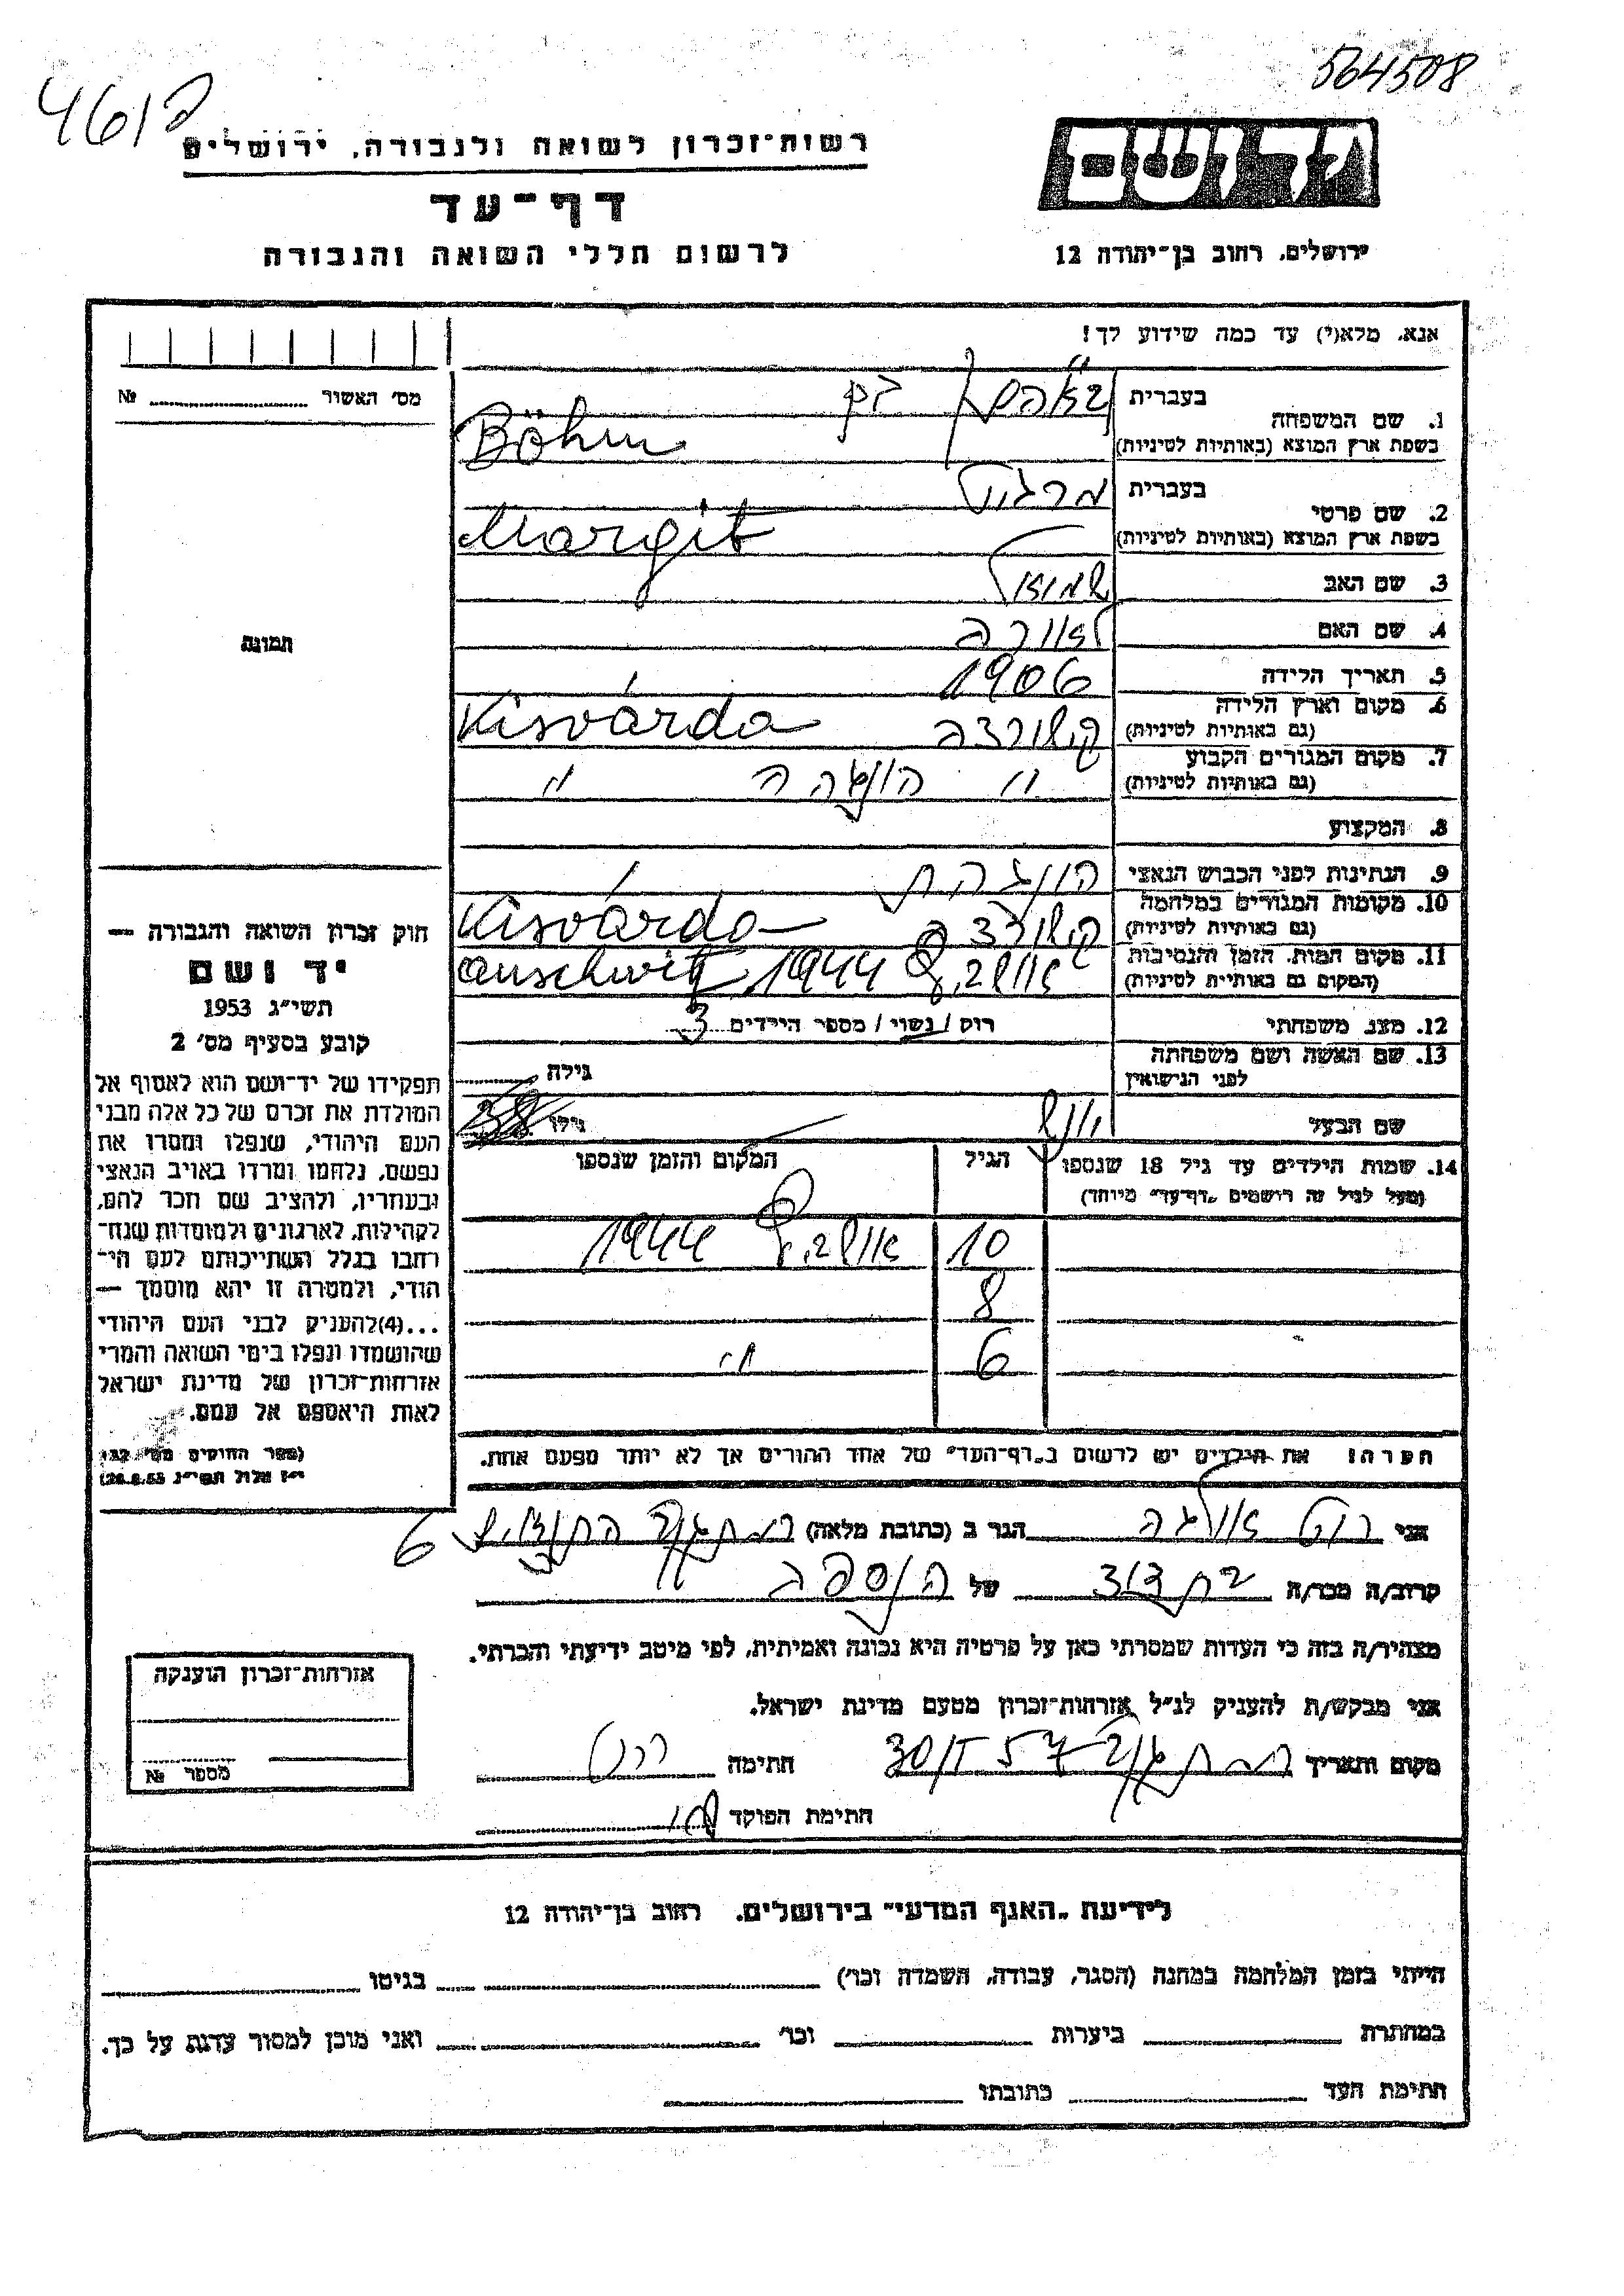 564508
461 ב
רשות־זכרון לשואה ולגבורה, ירושלים
יד ושם
דף־עד
לרשום חללי השואה והגבורה
ירושלים, רחוב בן־יהודה 12
אנא, מלא(י) עד כמה שידוע לך!
מס' האשור № 
1. שם המשפחה
בעברית
בשפת ארץ המוצא (באותיות לטיניות)
Böhm
2. שם פרטי
בעברית מרגיט
בשפת ארץ המוצא (באותיות לטיניות)
Margit
3. שם האב שמואל
4. שם האם לאורה
5. תאריך הלידה 1906
6. מקום וארץ הלידה קישורדה Kisvárda
(גם באותיות לטיניות)
7. מקום המגורים הקבוע " הונגריה "
(גם באותיות לטיניות)
8. המקצוע
9. הנתינות לפני הכבוש הנאצי הונגרית
10. מקומות המגורים במלחמה קישורדה Kisvárda
(גם באותיות לטיניות)
11. מקום המות, הזמן והנסיבות אושביץ 1944 Auschwitz
(המקום גם באותיות לטיניות)
12. מצב משפחתי רוק / נשוי / מספר הילדים 3
13. שם האשה ושם משפחתה
לפני הנישואין
גילה
שם הבעל
גילו 38
14. שמות הילדים עד גיל 18 שנספו
(מעל לגיל זה רושמים "דף־עד" מיוחד)
הגיל
המקום והזמן שנספו
10 אושביץ 1944
8
6 "
הערה: את הילדים יש לרשום ב"דף־העד" של אחד ההורים אך לא יותר מפעם אחת.
תמונה
חוק זכרון השואה והגבורה —
יד ושם
תשי"ג 1953
קובע בסעיף מס' 2
תפקידו של יד־ושם הוא לאסוף אל
המולדת את זכרם של כל אלה מבני
העם היהודי, שנפלו ומסרו את
נפשם, נלחמו ומרדו באויב הנאצי
ובעוזריו, ולהציב שם וזכר להם,
לקהילות, לארגונים ולמוסדות שנח־
רחבו בגלל השתייכותם לעם הי־
הודי, ולמטרה זו יהא מוסמך —
...(4) להעניק לבני העם היהודי
שהושמדו ונפלו בימי השואה והמרי
אזרחות־זכרון של מדינת ישראל
לאות היאספם אל עמם.
(ספר החוקים מס' 132,
י"ז אלול תשי"ג 28.8.53)
אני רוט אולגה הגר ב (כתובת מלאה) רמת גן 6
קרוב/ה מכר/ה בת דוד של הנספה
מצהיר/ה בזה כי העדות שמסרתי כאן על פרטיה היא נכונה ואמיתית, לפי מיטב ידיעתי והכרתי.
אני מבקש/ת להעניק לנ"ל אזרחות־זכרון מטעם מדינת ישראל.
מקום ותאריך רמת גן 57 חתימה רוט
חתימת הפוקד
אזרחות־זכרון הוענקה
מספר №
לידיעת "האגף המדעי" בירושלים, רחוב בן־יהודה 12
הייתי בזמן המלחמה במחנה (הסגר, עבודה, השמדה וכו') בגיטו
במחתרת ביערות וכו' ואני מוכן למסור עדות על כך.
חתימת העד כתובתו